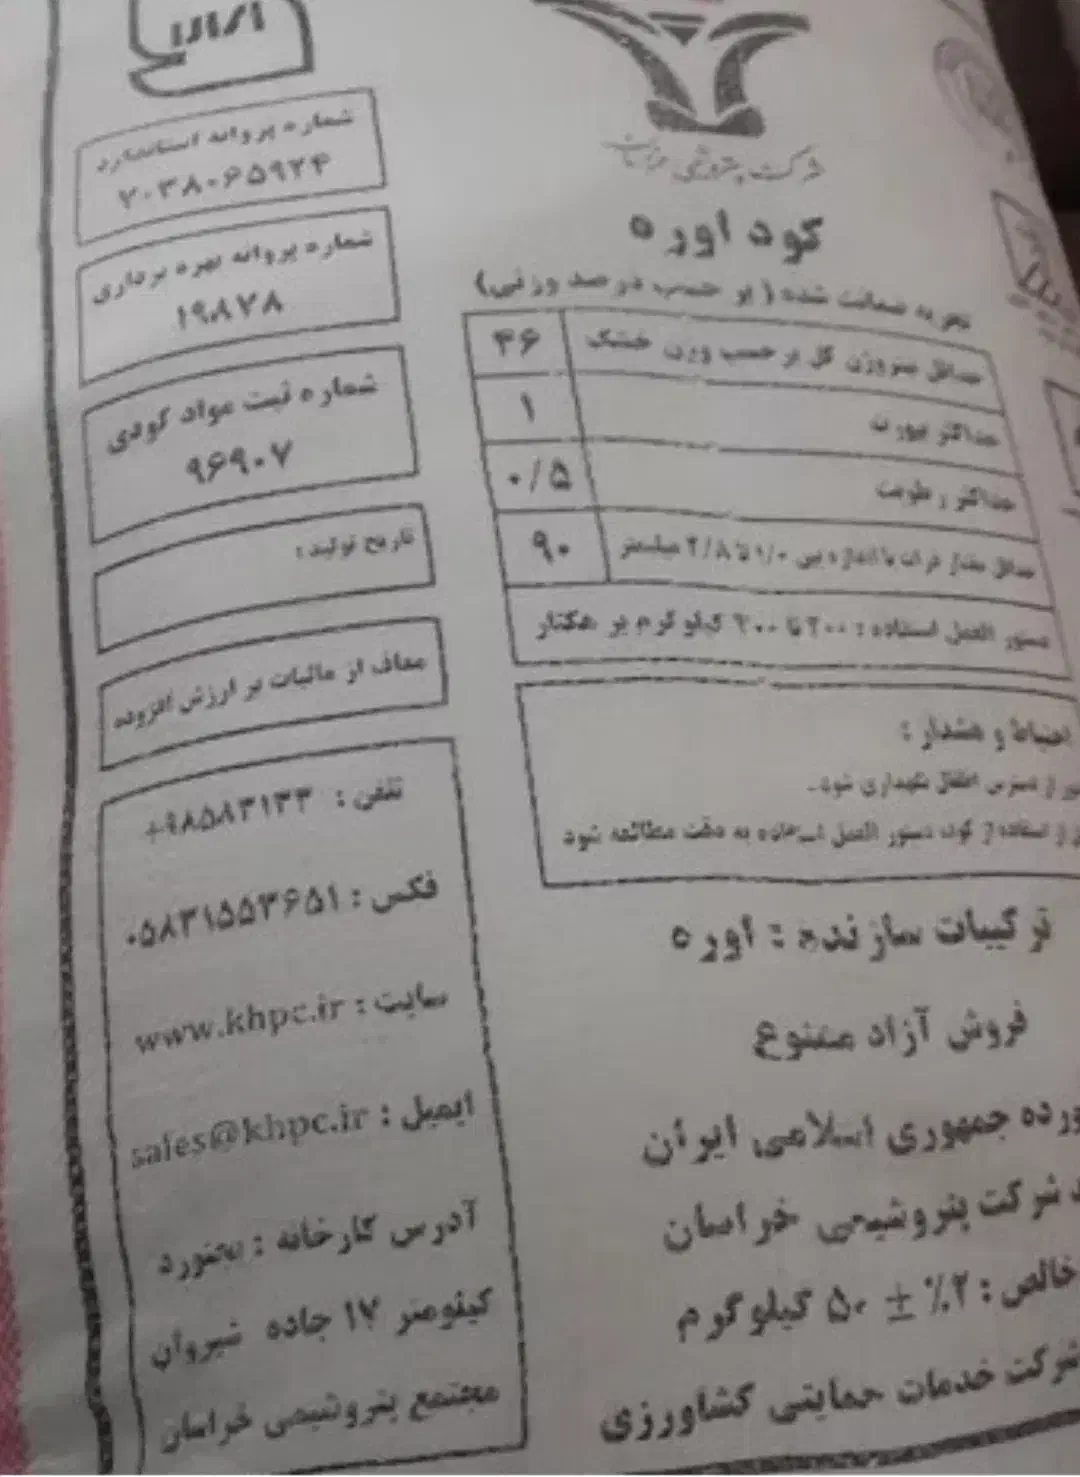 شرکت پتروشیمی خراسان
کود اوره
تجزیه ضمانت شده (بر حسب درصد وزنی)
حداقل نیتروژن کل بر حسب وزن خشک ۴۶
حداکثر بیورت ۱
حداکثر رطوبت ۰/۵
حداقل مقدار ذرات با اندازه بین ۱/۰ تا ۲/۸ میلیمتر ۹۰
دستور العمل استفاده : ۲۰۰ تا ۳۰۰ کیلوگرم بر هکتار
احتیاط و هشدار :
از دسترس اطفال نگهداری شود.
از استفاده از کود، دستور العمل استفاده به دقت مطالعه شود
ترکیبات سازنده : اوره
فروش آزاد ممنوع
جمهوری اسلامی ایران
شرکت پتروشیمی خراسان
خالص : ۲٪ ± ۵۰ کیلوگرم
شرکت خدمات حمایتی کشاورزی
شماره پروانه استاندارد
۲۰۳۸۰۶۵۹۲۴
شماره پروانه بهره برداری
۱۹۸۷۸
شماره ثبت مواد کودی
۹۶۹۰۷
تاریخ تولید :
معاف از مالیات بر ارزش افزوده
تلفن : ۹۸۵۸۳۱۳۳+
فکس : ۰۵۸۳۱۵۵۳۶۵۱
سایت : www.khpc.ir
ایمیل : sales@khpc.ir
آدرس کارخانه : بجنورد
کیلومتر ۱۷ جاده شیروان
مجتمع پتروشیمی خراسان